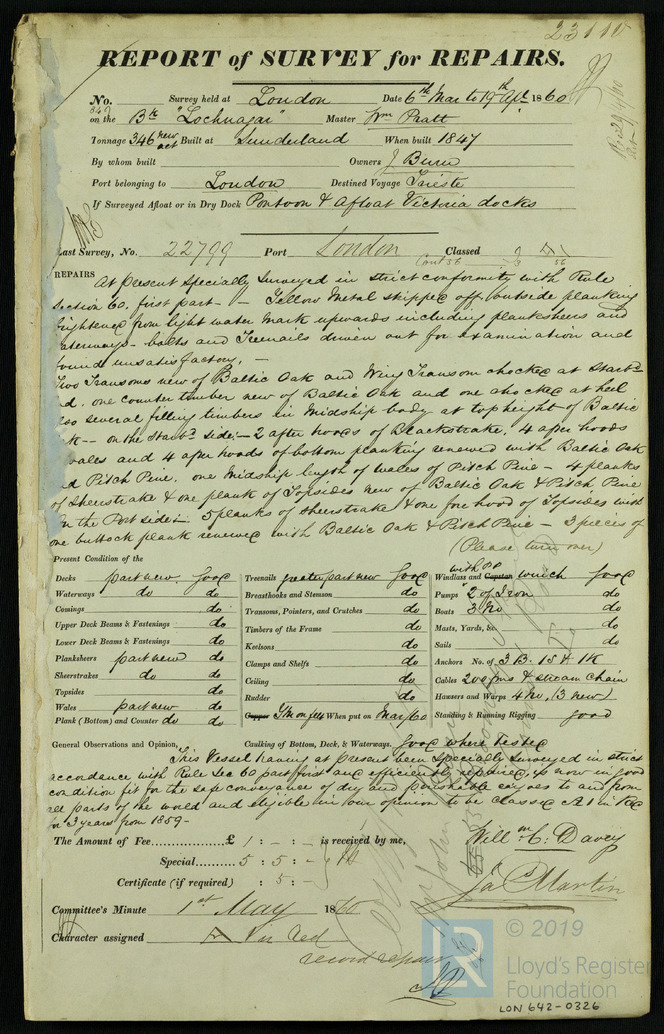 23110
REPORT of SURVEY for REPAIRS.
No. Survey held at London Date 6th Mar to 19th Apl 1860
347
on the Bk "Lochnagar" Master Wm Pratt
Tonnage 346 new act Built at Sunderland When built 1847
By whom built Owners J
Port belonging to London Destined Voyage Trieste
If Surveyed Afloat or in Dry Dock Pontoon & Afloat Victoria docks
Last Survey, No. 22799 Port London Classed
Cont 56
REPAIRS At present Specially Surveyed in strict conformity with Rule
Section 60, first part - - Yellow Metal stripped off, outside planking
brightened from light water mark upwards including planksheers and
waterways - bolts and Treenails driven out for examination and
found unsatisfactory. -
Two Transoms new of Baltic Oak and Wing Transom chocked at Starbd
nd. one counter timber new of Baltic Oak and one chocked at heel
also several filling timbers in Midship body at top height of Baltic
Oak - - on the Starbd side: - 2 after hoods of Blackstrake, 4 after hoods
wales and 4 after hoods of bottom planking renewed with Baltic Oak
nd Pitch Pine. one Midship length of wales of Pitch Pine - 4 planks
of Sheerstrake & one plank of Topsides new of Baltic Oak & Pitch Pine
On the Port side: - 5 planks of Sheerstrake & one fore hood of Topsides with
one buttock plank renewed with Baltic Oak & Pitch Pine - 3 pieces of
(Please turn over)
Present Condition of the
Decks part new. good
Waterways do do
Comings do
Upper Deck Beams & Fastenings do
Lower Deck Beams & Fastenings do
Planksheers part new do
Sheerstrakes do do
Topsides do
Wales part new do
Plank (Bottom) and Counter do do
Treenails greater part new good
Breasthooks and Stemson do
Transoms, Pointers, and Crutches do
Timbers of the Frame do
Keelsons do
Clamps and Shelfs do
Ceiling do
Rudder do
Copper YM on felt When put on Mar/60
Windlass and Capstan with pp winch good
Pumps 2 of Iron do
Boats 3 No do
Masts, Yards, &c. do
Sails do
Anchors No. of 3 B. 1 S & 1 K
Cables 200 fms & stream chain
Hawsers and Warps 4 No, (3 new)
Standing & Running Rigging good
General Observations and Opinion, Caulking of Bottom, Deck, & Waterways. good where tested
This Vessel having at present been Specially Surveyed in strict
accordance with Rule Sec 60 part first and efficiently repaired, is now in good
condition fit for the safe conveyance of dry and perishable cargoes to and from
all parts of the world and eligible in our opinion to be classed A1 in Red
for 3 years from 1859 -
The Amount of Fee £ 1 : - : - is received by me,
Special 5 : 5 : -
Certificate (if required) : 5 : -
Willm C. Davey
Jas Martin
Committee's Minute 1st May 1860
Character assigned A in Red
record repairs
© 2019
LR
Lloyd's Register
Foundation
LON 642-0326